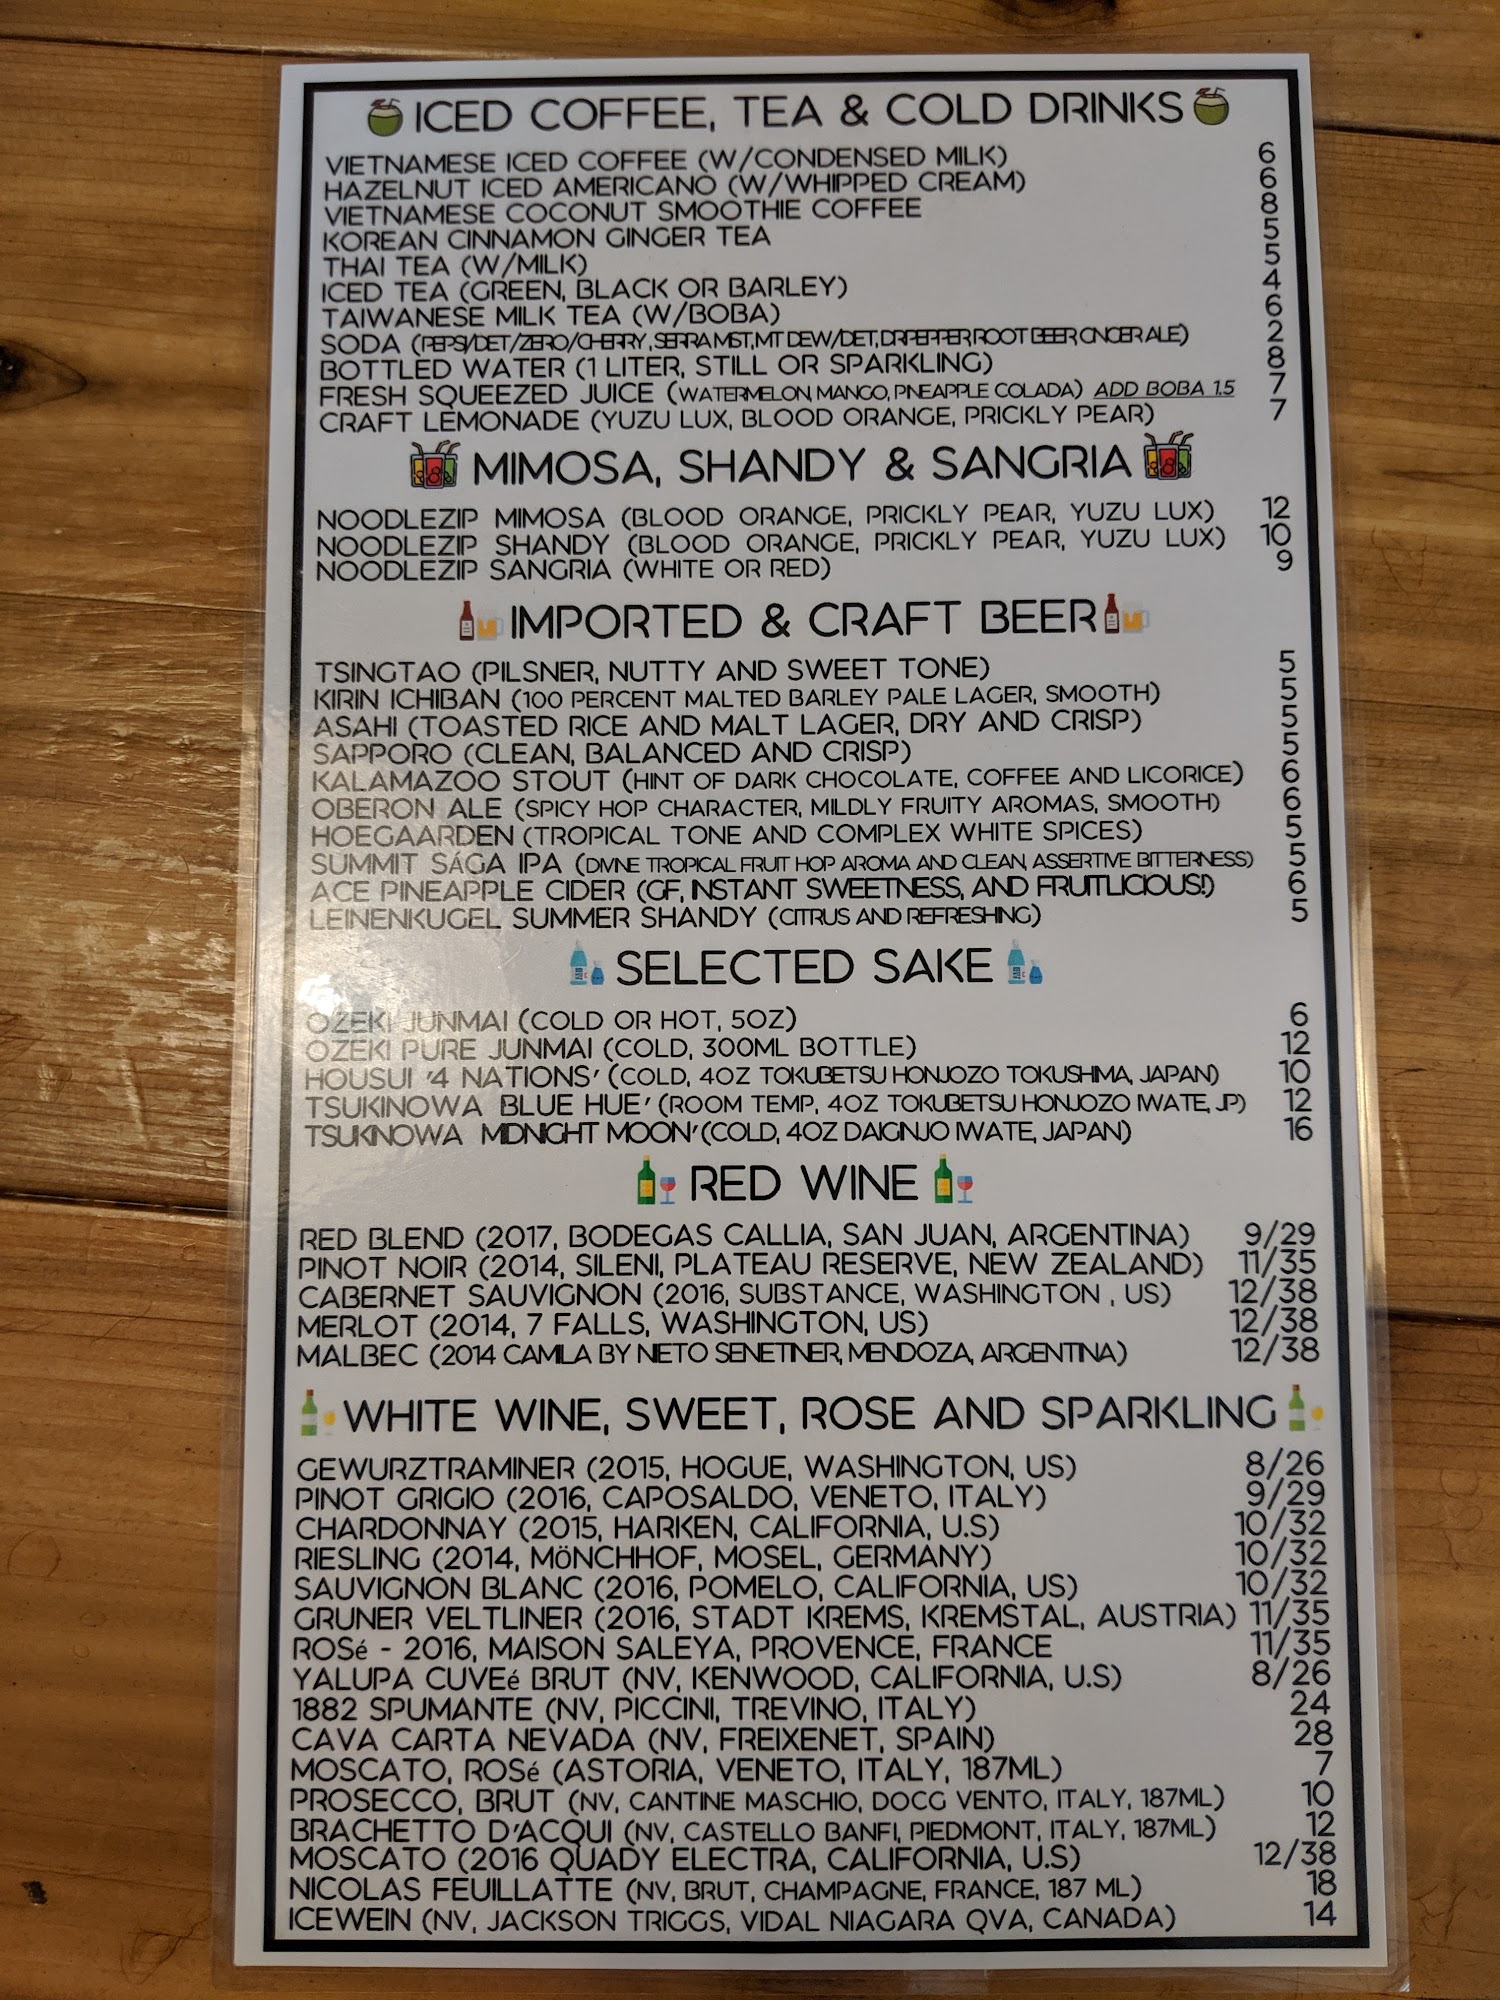 ICED COFFEE, TEA & COLD DRINKS
VIETNAMESE ICED COFFEE (W/CONDENSED MILK) 6
HAZELNUT ICED AMERICANO (W/WHIPPED CREAM) 6
VIETNAMESE COCONUT SMOOTHIE COFFEE 8
KOREAN CINNAMON GINGER TEA 5
THAI TEA (W/MILK) 5
ICED TEA (GREEN, BLACK OR BARLEY) 4
TAIWANESE MILK TEA (W/BOBA) 6
SODA (PEPSI/DIET/ZERO/CHERRY, SIERRA MIST, MT DEW/DIET, DR.PEPPER, ROOT BEER GINGER ALE) 2
BOTTLED WATER (1 LITER, STILL OR SPARKLING) 8
FRESH SQUEEZED JUICE (WATERMELON, MANGO, PINEAPPLE COLADA) ADD BOBA 1.5 7
CRAFT LEMONADE (YUZU LUX, BLOOD ORANGE, PRICKLY PEAR) 7
MIMOSA, SHANDY & SANGRIA
NOODLEZIP MIMOSA (BLOOD ORANGE, PRICKLY PEAR, YUZU LUX) 12
NOODLEZIP SHANDY (BLOOD ORANGE, PRICKLY PEAR, YUZU LUX) 10
NOODLEZIP SANGRIA (WHITE OR RED) 9
IMPORTED & CRAFT BEER
TSINGTAO (PILSNER, NUTTY AND SWEET TONE) 5
KIRIN ICHIBAN (100 PERCENT MALTED BARLEY PALE LAGER, SMOOTH) 5
ASAHI (TOASTED RICE AND MALT LAGER, DRY AND CRISP) 5
SAPPORO (CLEAN, BALANCED AND CRISP) 5
KALAMAZOO STOUT (HINT OF DARK CHOCOLATE, COFFEE AND LICORICE) 6
OBERON ALE (SPICY HOP CHARACTER, MILDLY FRUITY AROMAS, SMOOTH) 6
HOEGAARDEN (TROPICAL TONE AND COMPLEX WHITE SPICES) 5
SUMMIT SÁGA IPA (DIVINE TROPICAL FRUIT HOP AROMA AND CLEAN, ASSERTIVE BITTERNESS) 5
ACE PINEAPPLE CIDER (GF, INSTANT SWEETNESS, AND FRUITLICIOUS!) 6
LEINENKUGEL SUMMER SHANDY (CITRUS AND REFRESHING) 5
SELECTED SAKE
OZEKI JUNMAI (COLD OR HOT, 5OZ) 6
OZEKI PURE JUNMAI (COLD, 300ML BOTTLE) 12
HOUSUI '4 NATIONS' (COLD, 4OZ TOKUBETSU HONJOZO TOKUSHIMA, JAPAN) 10
TSUKINOWA BLUE HUE' (ROOM TEMP, 4OZ TOKUBETSU HONJOZO IWATE, JP) 12
TSUKINOWA MIDNIGHT MOON' (COLD, 4OZ DAIGINJO IWATE, JAPAN) 16
RED WINE
RED BLEND (2017, BODEGAS CALLIA, SAN JUAN, ARGENTINA) 9/29
PINOT NOIR (2014, SILENI, PLATEAU RESERVE, NEW ZEALAND) 11/35
CABERNET SAUVIGNON (2016, SUBSTANCE, WASHINGTON , US) 12/38
MERLOT (2014, 7 FALLS, WASHINGTON, US) 12/38
MALBEC (2014 CAMILA BY NIETO SENETINER, MENDOZA, ARGENTINA) 12/38
WHITE WINE, SWEET, ROSE AND SPARKLING
GEWURZTRAMINER (2015, HOGUE, WASHINGTON, US) 8/26
PINOT GRIGIO (2016, CAPOSALDO, VENETO, ITALY) 9/29
CHARDONNAY (2015, HARKEN, CALIFORNIA, U.S) 10/32
RIESLING (2014, MöNCHHOF, MOSEL, GERMANY) 10/32
SAUVIGNON BLANC (2016, POMELO, CALIFORNIA, US) 10/32
GRUNER VELTLINER (2016, STADT KREMS, KREMSTAL, AUSTRIA) 11/35
ROSé - 2016, MAISON SALEYA, PROVENCE, FRANCE 11/35
YALUPA CUVEé BRUT (NV, KENWOOD, CALIFORNIA, U.S) 8/26
1882 SPUMANTE (NV, PICCINI, TREVINO, ITALY) 24
CAVA CARTA NEVADA (NV, FREIXENET, SPAIN) 28
MOSCATO, ROSé (ASTORIA, VENETO, ITALY, 187ML) 7
PROSECCO, BRUT (NV, CANTINE MASCHIO, DOCG VENTO, ITALY, 187ML) 10
BRACHETTO D'ACQUI (NV, CASTELLO BANFI, PIEDMONT, ITALY, 187ML) 12
MOSCATO (2016 QUADY ELECTRA, CALIFORNIA, U.S) 12/38
NICOLAS FEUILLATTE (NV, BRUT, CHAMPAGNE, FRANCE, 187 ML) 18
ICEWEIN (NV, JACKSON TRIGGS, VIDAL NIAGARA QVA, CANADA) 14